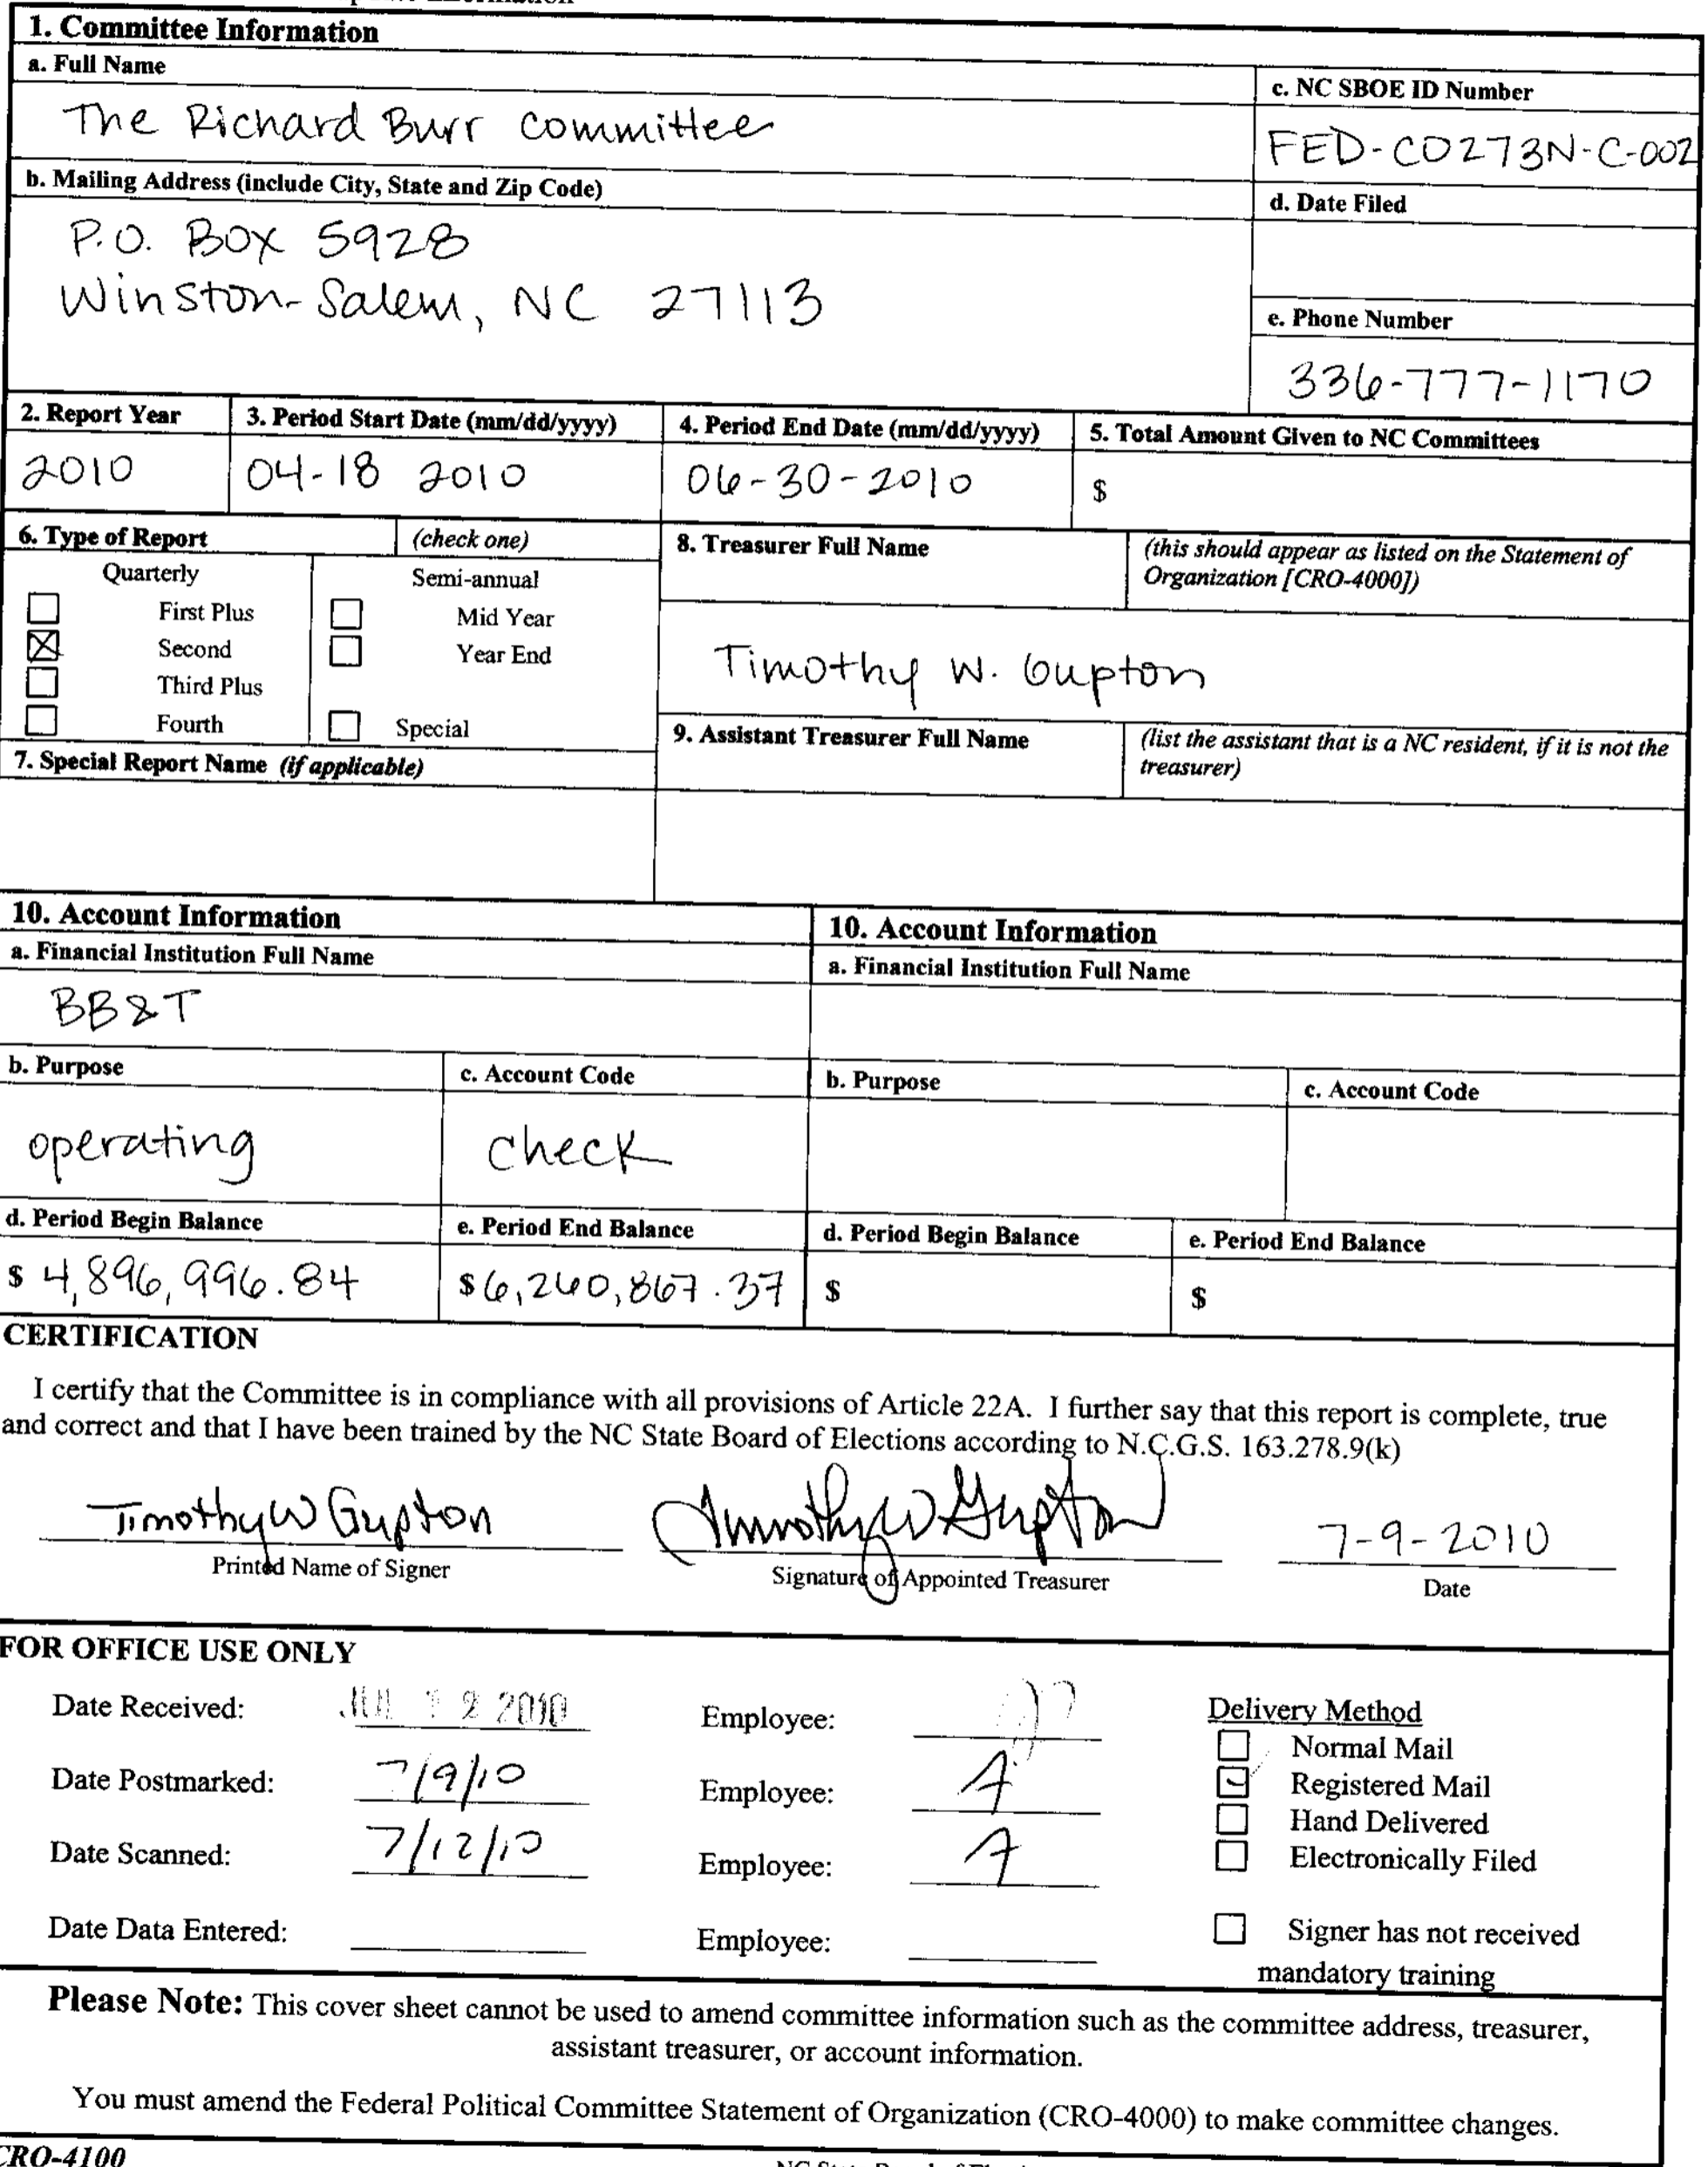 1. Committee Information
a. Full Name
The Richard Burr Committee
c. NC SBOE ID Number
FED-C0273N-C-002
b. Mailing Address (include City, State and Zip Code)
P.O. Box 5928
Winston-Salem, NC 27113
d. Date Filed
e. Phone Number
336-777-1170
2. Report Year
2010
3. Period Start Date (mm/dd/yyyy)
04-18 2010
4. Period End Date (mm/dd/yyyy)
06-30-2010
5. Total Amount Given to NC Committees
$
6. Type of Report (check one)
Quarterly Semi-annual
First Plus Mid Year
Second Year End
Third Plus
Fourth Special
7. Special Report Name (if applicable)
8. Treasurer Full Name
(this should appear as listed on the Statement of
Organization [CRO-4000])
Timothy W. Gupton
9. Assistant Treasurer Full Name
(list the assistant that is a NC resident, if it is not the
treasurer)
10. Account Information
a. Financial Institution Full Name
BB&T
b. Purpose
operating
c. Account Code
check
d. Period Begin Balance
$ 4,896,996.84
e. Period End Balance
$ 6,260,867.37
10. Account Information
a. Financial Institution Full Name
b. Purpose
c. Account Code
d. Period Begin Balance
$
e. Period End Balance
$
CERTIFICATION
I certify that the Committee is in compliance with all provisions of Article 22A. I further say that this report is complete, true
and correct and that I have been trained by the NC State Board of Elections according to N.C.G.S. 163.278.9(k)
Timothy W Gupton Timothy W Gupton 7-9-2010
Printed Name of Signer Signature of Appointed Treasurer Date
FOR OFFICE USE ONLY
Date Received: JUL 12 2010 Employee:
Date Postmarked: 7/9/10 Employee:
Date Scanned: 7/12/10 Employee:
Date Data Entered: Employee:
Delivery Method
Normal Mail
Registered Mail
Hand Delivered
Electronically Filed
Signer has not received
mandatory training
Please Note: This cover sheet cannot be used to amend committee information such as the committee address, treasurer,
assistant treasurer, or account information.
You must amend the Federal Political Committee Statement of Organization (CRO-4000) to make committee changes.
CRO-4100